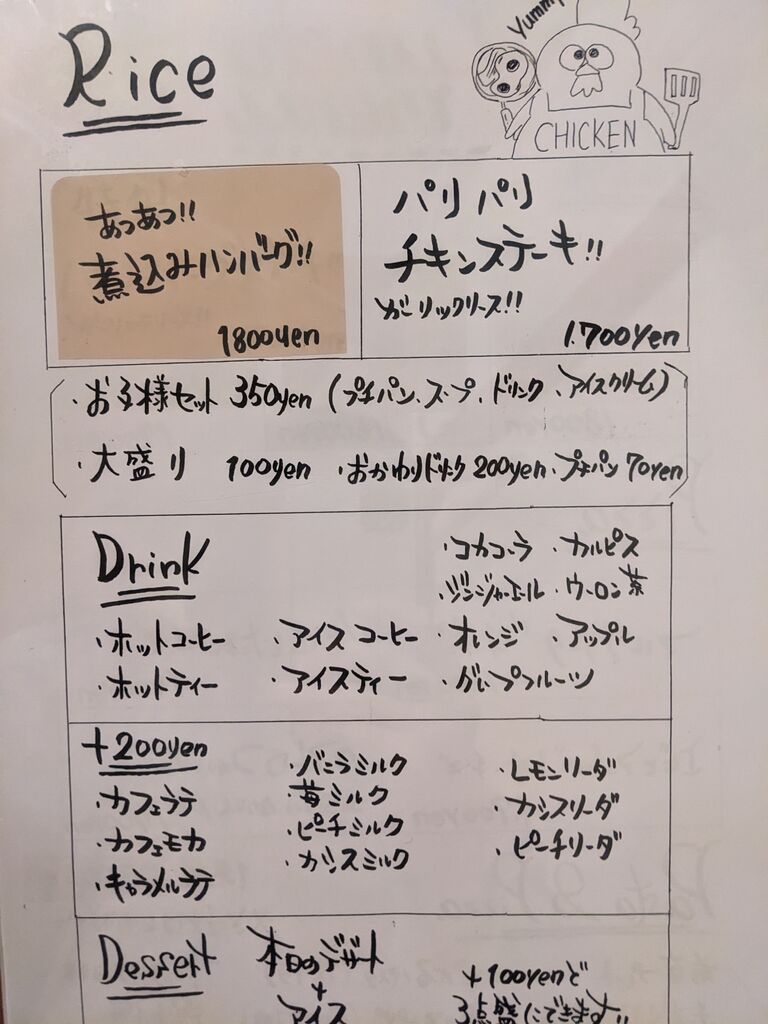 Rice
Yummy
CHICKEN
あつあつ!!
煮込みハンバーグ!!
1800yen
パリパリ
チキンステーキ!!
ガーリックソース!!
1.700Yen
・お子様セット 350yen (プチパン、スープ、ドリンク、アイスクリーム)
・大盛り 100yen ・おかわりドリンク 200yen ・プチパン 70yen
Drink
・コカコーラ ・カルピス
・ジンジャーエール ・ウーロン茶
・ホットコーヒー ・アイスコーヒー ・オレンジ ・アップル
・ホットティー ・アイスティー ・グレープフルーツ
+200yen
・カフェラテ
・カフェモカ
・キャラメルラテ
・バニラミルク
・苺ミルク
・ピーチミルク
・カシスミルク
・レモンソーダ
・カシスソーダ
・ピーチソーダ
Dessert
本日のデザート
+
アイス
+100yenで
3点盛にできます!!